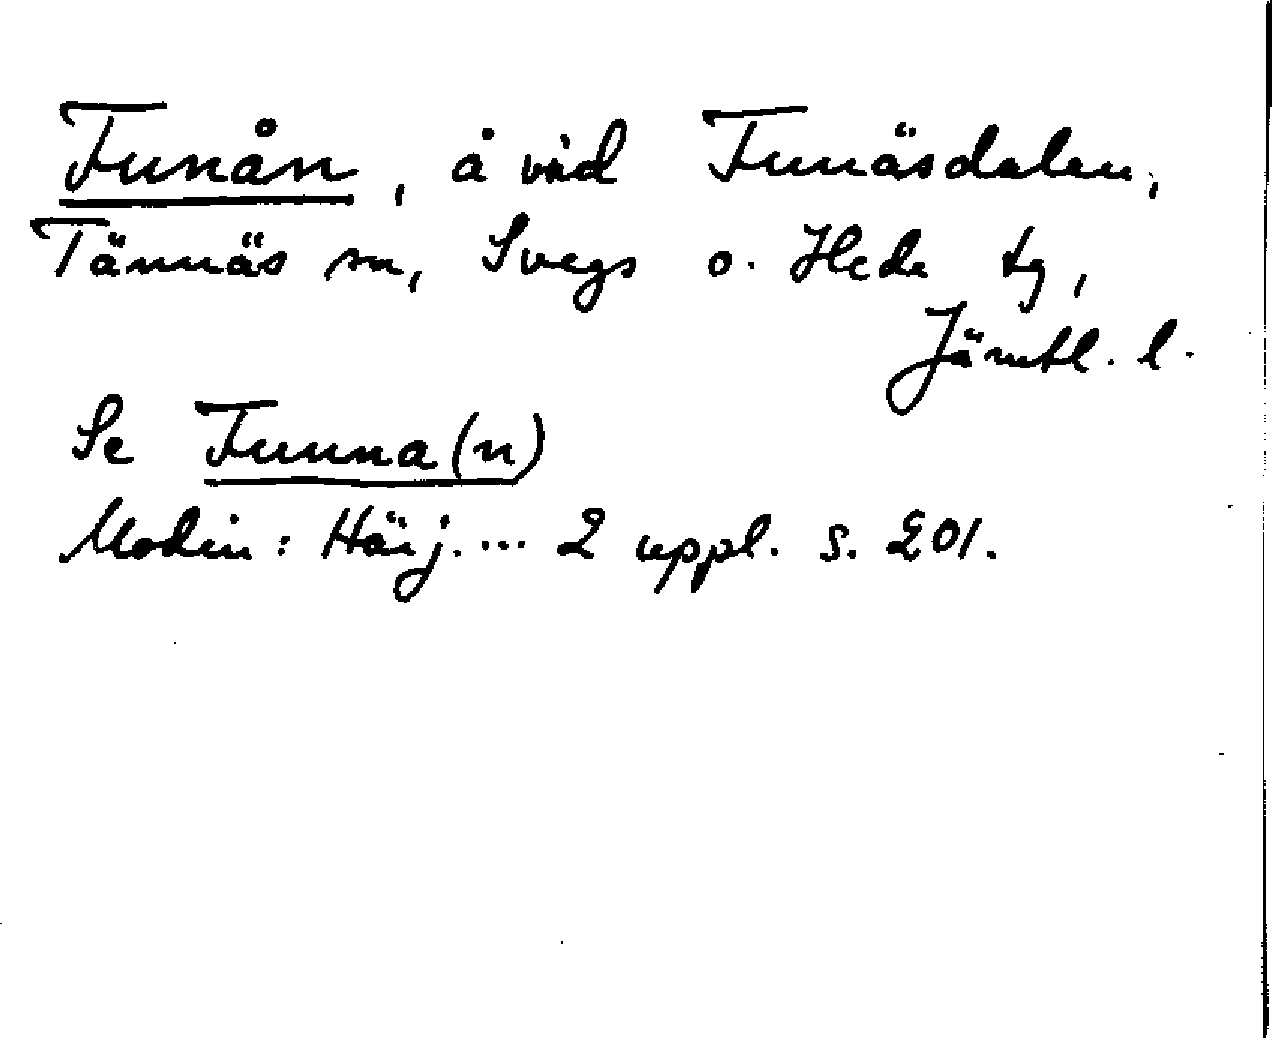 Funån, å vid Funäsdalen,
Tännäs sn, Svegs o. Hede tg,
Jämtl. l.
Se Funna(n)
Modin: Härj. ... 2 uppl. s. 201.